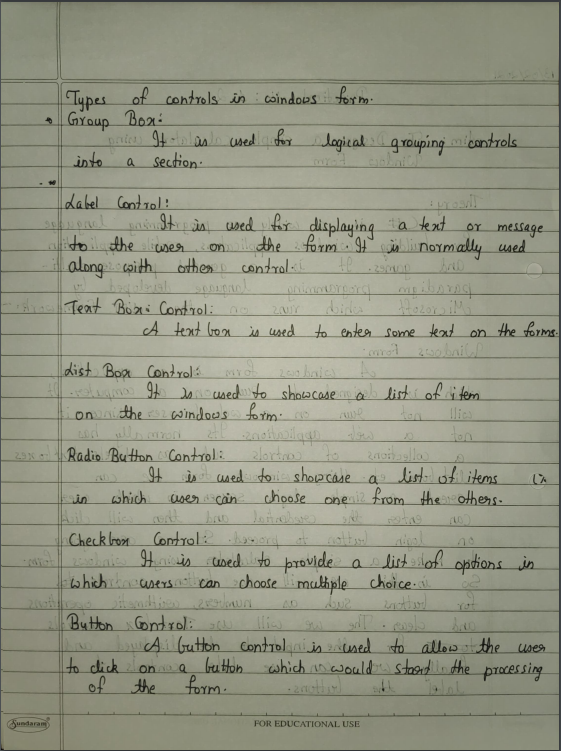 Types of controls in windows form.
Group Box:
It is used for logical grouping controls
into a section.
Label Control:
It is used for displaying a text or message
to the user on the form. It is normally used
along with other control.
Text Box: Control:
A text box is used to enter some text on the forms.
List Box Control:
It is used to showcase a list of item
on the windows form.
Radio Button Control:
It is used to showcase a list of items
in which user can choose one from the others.
Checkbox Control:
It is used to provide a list of options in
which users can choose multiple choice.
Button Control:
A button control is used to allow the user
to click on a button which would start the processing
of the form.
Sundaram
FOR EDUCATIONAL USE